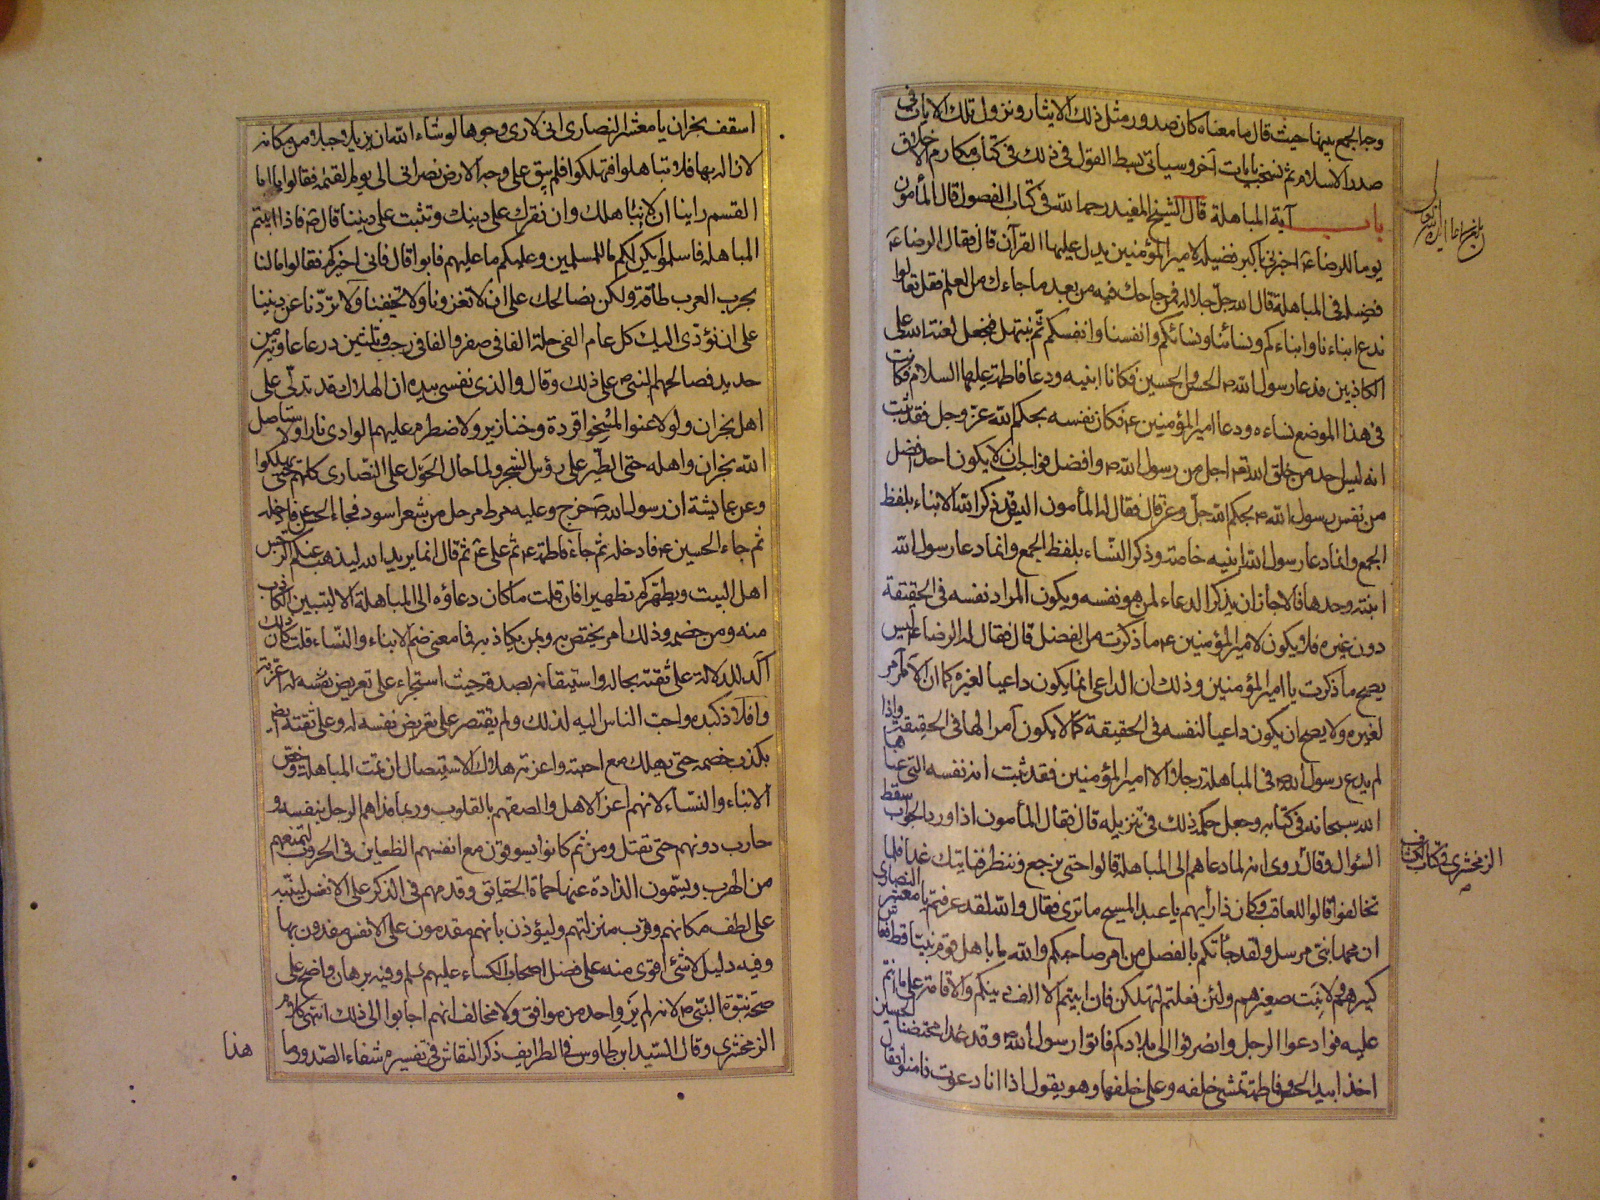 وجه الجمع بينها حيث قال ما معناه كان صدور مثل ذلك الايثار ونزول تلك الايات في
صدر الاسلام ثم نسخ بايات آخر وسياتي بسط القول في ذلك في كتاب مكارم الاخلاق
باب آية المباهلة قال الشيخ المفيد رحمه الله في كتاب الفصول قال المأمون
يوما للرضا ع اخبرني باكبر فضيلة لامير المؤمنين يدل عليها القرآن قال فقال الرضا ع
فضيلة في المباهلة قال الله جل جلاله فمن حاجك فيه من بعد ما جاءك من العلم فقل تعالوا
ندع ابناءنا وابناءكم ونسائنا ونسائكم وانفسنا وانفسكم ثم نبتهل فنجعل لعنة الله على
الكاذبين فدعا رسول الله ص الحسن والحسين فكانا ابنيه ودعا فاطمة عليها السلام فكانت
في هذا الموضع نساءه ودعا امير المؤمنين ع فكان نفسه بحكم الله عز وجل فقد ثبت
انه ليس احد من خلق الله تعالى اجل من رسول الله ص وافضل فواجب ان لا يكون احد افضل
من نفس رسول الله ص بحكم الله جل وعز قال فقال له المأمون اليس قد ذكر الله الابناء بلفظ
الجمع وانما دعا رسول الله ابنيه خاصة وذكر النساء بلفظ الجمع وانما دعا رسول الله
ابنته وحدها فالا جاز ان يذكر الدعاء لمن هو نفسه ويكون المراد نفسه في الحقيقة
دون غيره فلا يكون لامير المؤمنين ع ما ذكرت من الفضل قال فقال له الرضا ع ليس
يصح ما ذكرت يا امير المؤمنين وذلك ان الداعي انما يكون داعيا لغيره كما ان الآمر آمر
لغيره ولا يصح ان يكون داعيا لنفسه في الحقيقة كما لا يكون آمرا لها في الحقيقة واذا
لم يدع رسول الله ص في المباهلة رجلا الا امير المؤمنين فقد ثبت انه نفسه التي عناها
الله سبحانه في كتابه وجعل حكمه ذلك في تنزيله قال فقال المأمون اذا ورد الجواب سقط
السؤال وقال روى انه لما دعاهم الى المباهلة قالوا حتى نرجع وننظر فناتيك غدا فلما
تخالفوا قالوا للعاقب وكان ذا رأيهم يا عبد المسيح ما ترى فقال والله لقد عرفتم يا معشر النصارى
ان محمدا نبي مرسل ولقد جائكم بالفصل من امر صاحبكم والله ما باهل قوم نبيا قط فعاش
كبيرهم ولا نبت صغيرهم ولئن فعلتم لتهلكن فان ابيتم الا الف دينكم والاقامة على ما انتم
عليه فوادعوا الرجل وانصرفوا الى بلادكم فاتوا رسول الله ص وقد غدا محتضنا الحسين
اخذا بيد الحسن وفاطمة تمشي خلفه وعلي خلفها وهو يقول اذا انا دعوت فامنوا فقال
الزمخشري في كتاب الكشاف
اسقف نجران يا معشر النصارى اني لارى وجوها لو شاء الله ان يزيل جبلا من مكانه
لازاله بها فلا تباهلوا فتهلكوا فلم يبق على وجه الارض نصراني الى يوم القيمة فقالوا يا ابا
القسم راينا ان لا نباهلك وان نقرك على دينك ونثبت على ديننا قال ص فاذا ابيتم
المباهلة فاسلموا يكن لكم ما للمسلمين وعليكم ما عليهم فابوا قال فاني اناجزكم فقالوا ما لنا
بحرب العرب طاقة ولكن نصالحك على ان لا تغزونا ولا تخيفنا ولا تردنا عن ديننا
على ان نؤدي اليك كل عام الفي حلة الفا في صفر والفا في رجب وثلثين درعا عادية من
حديد فصالحهم النبي ص على ذلك وقال والذي نفسي بيده ان الهلاك قد تدلى على
اهل نجران ولو لاعنوا لمسخوا قردة وخنازير ولاضطرم عليهم الوادي نارا ولاستاصل
الله نجران واهله حتى الطير على رؤس الشجر ولما حال الحول على النصارى كلهم حتى يهلكوا
وعن عايشة ان رسول الله ص خرج وعليه مرط مرحل من شعر اسود فجاء الحسن ع فادخله
ثم جاء الحسين ع فادخله ثم جاءت فاطمة ع ثم علي ع ثم قال انما يريد الله ليذهب عنكم الرجس
اهل البيت ويطهركم تطهيرا فان قلت ما كان دعاؤه الى المباهلة الا ليتبين الكاذب
منه ومن خصمه وذلك امر يختص به وبمن يكاذبه فما معنى ضم الابناء والنساء قلت كان ذلك
آكد للدلالة على ثقته بحاله واستيقانه بصدقه حيث استجراء على تعريض نفسه له اعزته
وافلاذ كبده واحب الناس اليه لذلك ولم يقتصر على تعريض نفسه له وعلى ثقته ايضا
بكذب خصمه حتى يهلك مع احبته واعزته هلاك الاستيصال ان تمت المباهلة وخص
الابناء والنساء لانهم اعز الاهل والصقهم بالقلوب وربما فداهم الرجل بنفسه و
حارب دونهم حتى يقتل ومن ثم كانوا يسوقون مع انفسهم الظعاين في الحروب لتمنعهم
من الهرب ويسمون الذادة عنها حماة الحقايق وقدمهم في الذكر على الانفس لينبه
على لطف مكانهم وقرب منزلتهم وليؤذن بانهم مقدمون على الانفس مفدون بها
وفيه دليل لا شئ اقوى منه على فضل اصحاب الكساء عليهم سلم وفيه برهان واضح على
صحة نبوة النبي ص لانه لم يرو احد من موافق ولا مخالف انهم اجابوا الى ذلك انتهى كلام
الزمخشري وقال السيد ابن طاوس في الطرايف ذكر النقاش في تفسيره شفاء الصدور ما
هذا